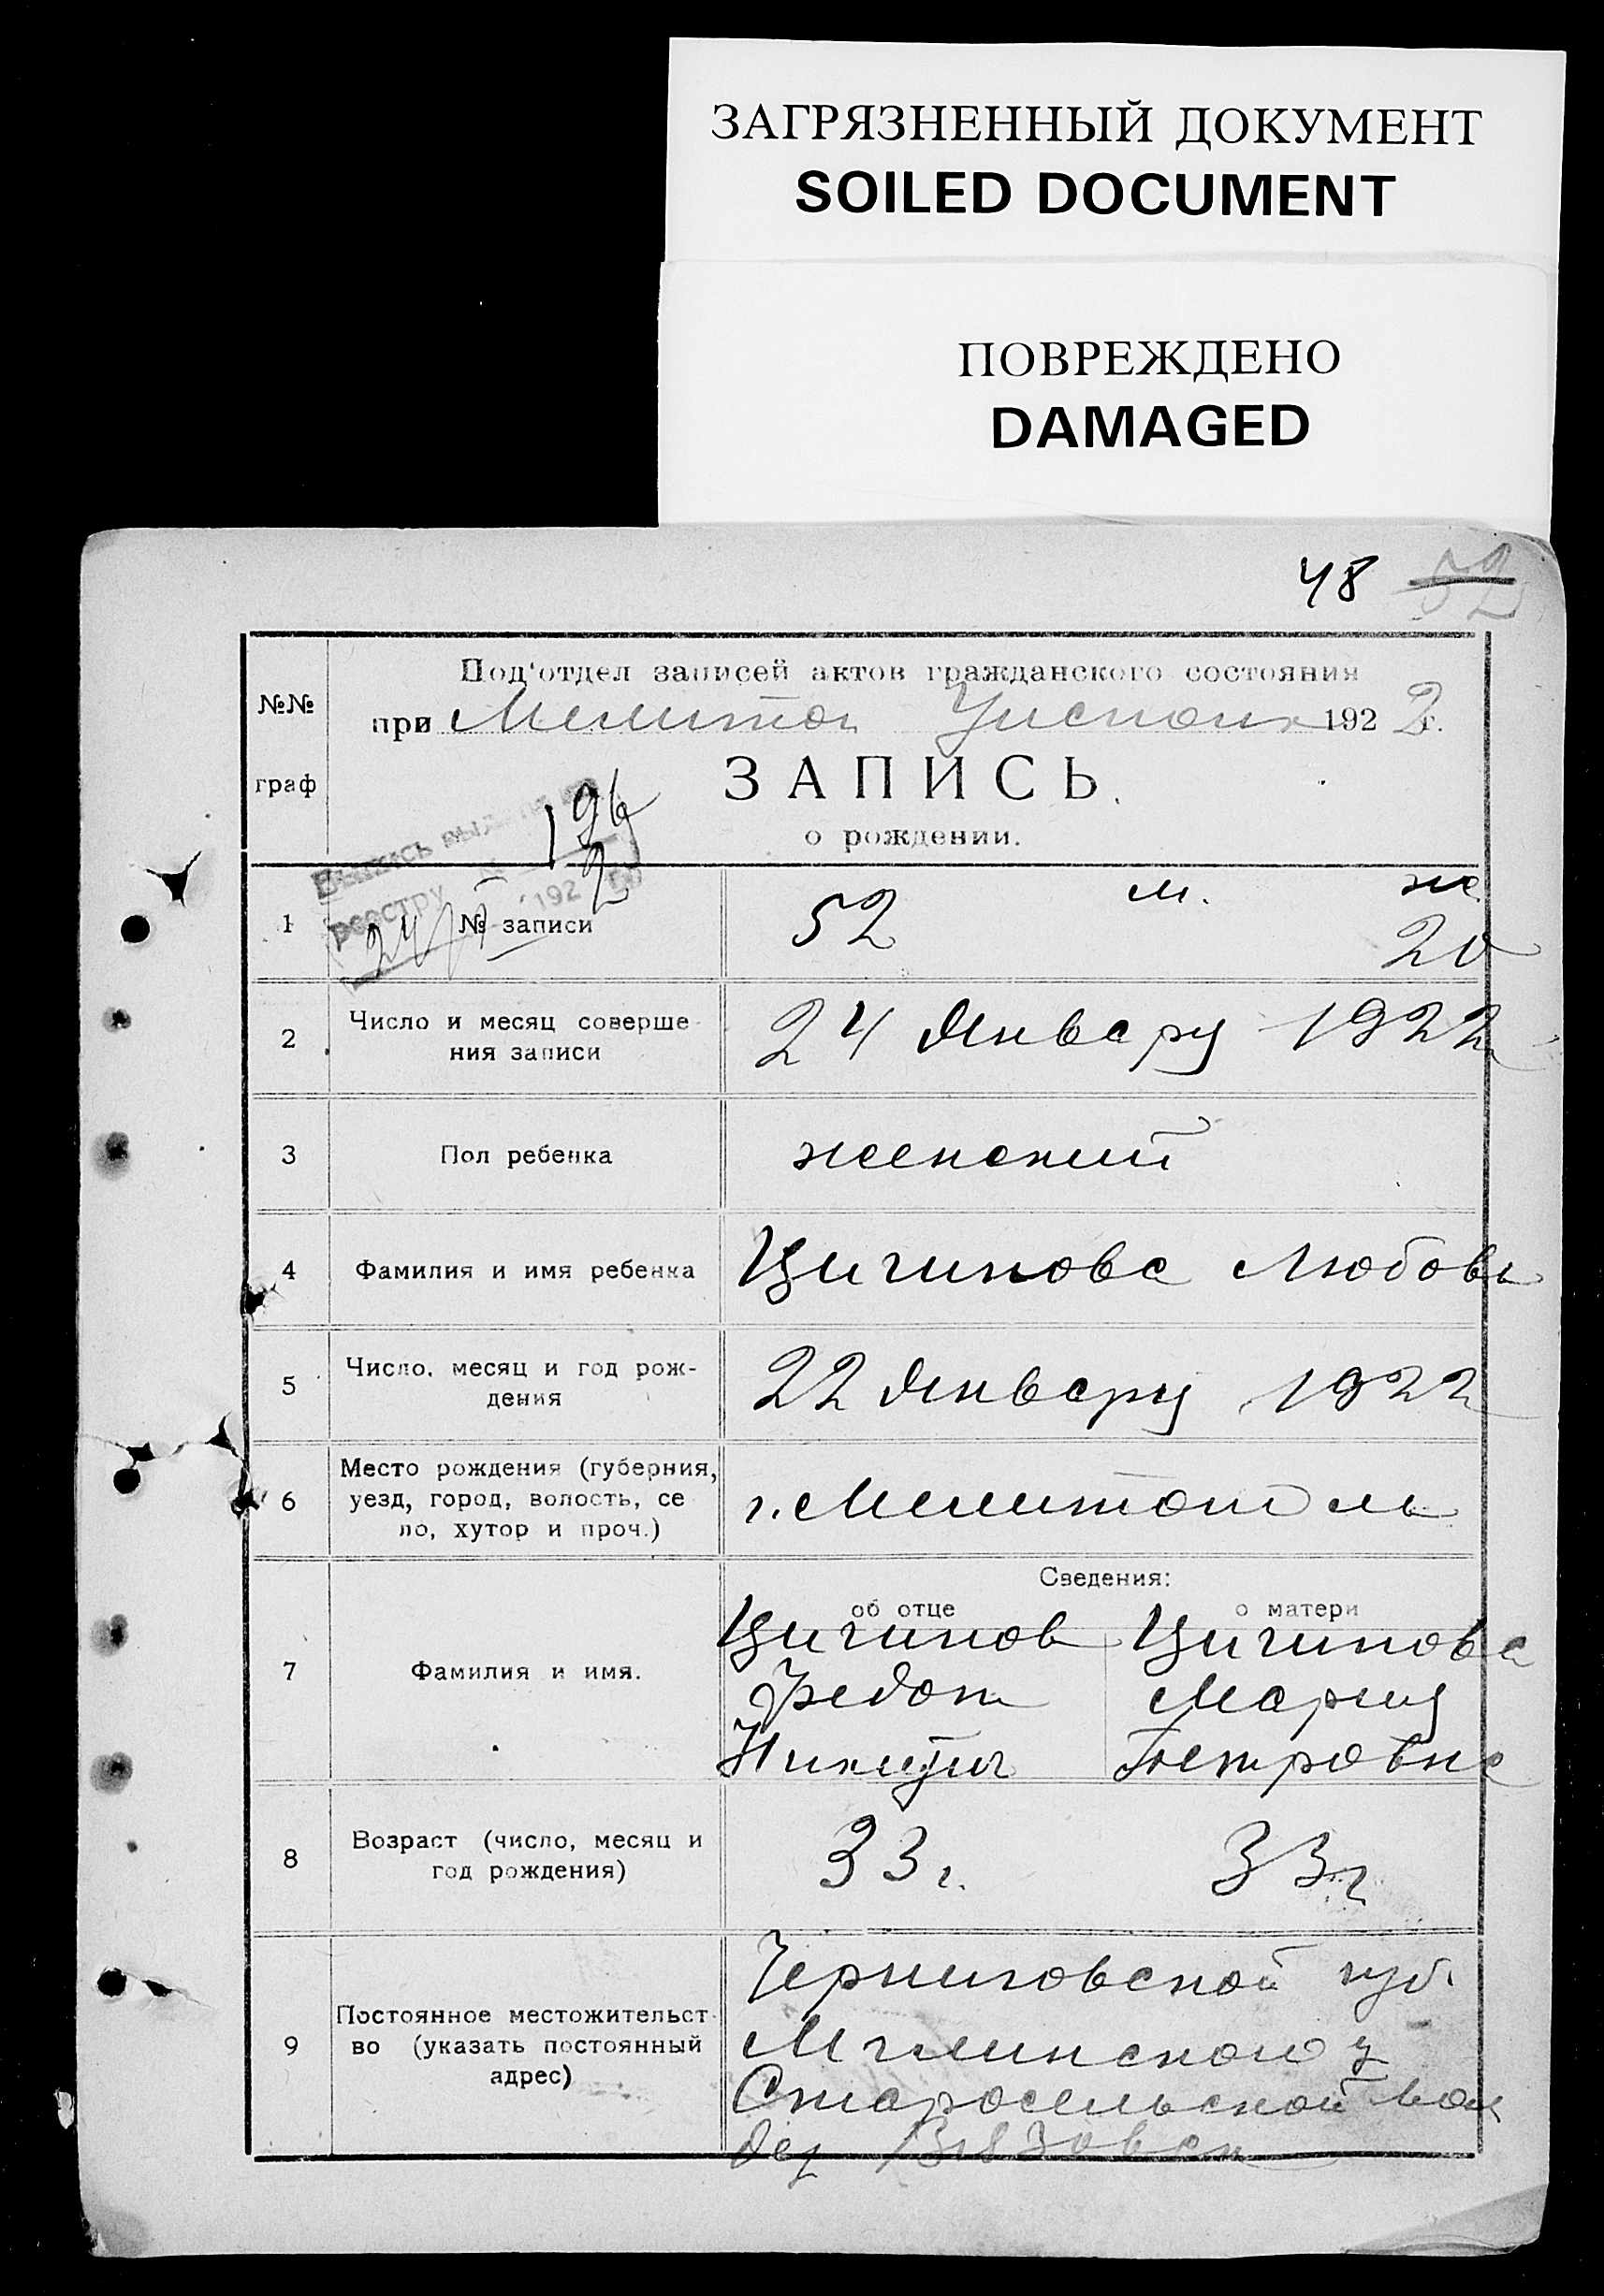 ЗАГРЯЗНЕННЫЙ ДОКУМЕНТ
SOILED DOCUMENT
ПОВРЕЖДЕНО
DAMAGED
48 52
№№ граф
Под'отдел записей актов гражданского состояния
при Мелитоп 1922 г.
ЗАПИСЬ
о рождении.
96
2
реестру № 192
1 № записи 52 м. ж. 20
2 Число и месяц соверше
ния записи
24 Январу 1922
3 Пол ребенка женский
4 Фамилия и имя ребенка Цигинова Любовь
5 Число, месяц и год рож-
дения
22 Январу 1922
6 Место рождения (губерния,
уезд, город, волость, се
ло, хутор и проч.)
г. Мелитополь
Сведения:
об отце о матери
7 Фамилия и имя.
Цигинов Цигинова
Федот Мария
Никитич Петровна
8 Возраст (число, месяц и
год рождения)
33 г. 33 г
9 Постоянное местожительст
во (указать постоянный
адрес)
Черниговской губ.
Мглинского у
Старосельской вол
дер